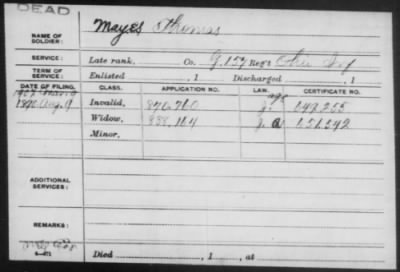 DEAD
NAME OF SOLDIER: Mayes Thomas
SERVICE: Late rank, Co. G, 157 Reg't Ohio Inf
TERM OF SERVICE: Enlisted , 1 Discharged , 1
DATE OF FILING. CLASS. APPLICATION NO. LAW. CERTIFICATE NO.
age
1890 Aug. 9 Invalid, 840,760 J. 642,255
Widow, 888,164 J. 656,592
Minor,
ADDITIONAL SERVICES:
REMARKS:
Died , 1 , at